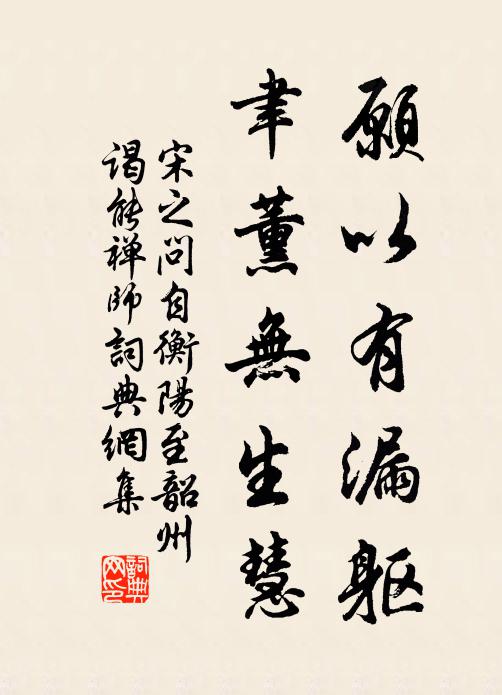 願以有漏躯
聿薰無生慧
宋之问自衡陽至韶州
谒能禅师詞典網集
詞典网印